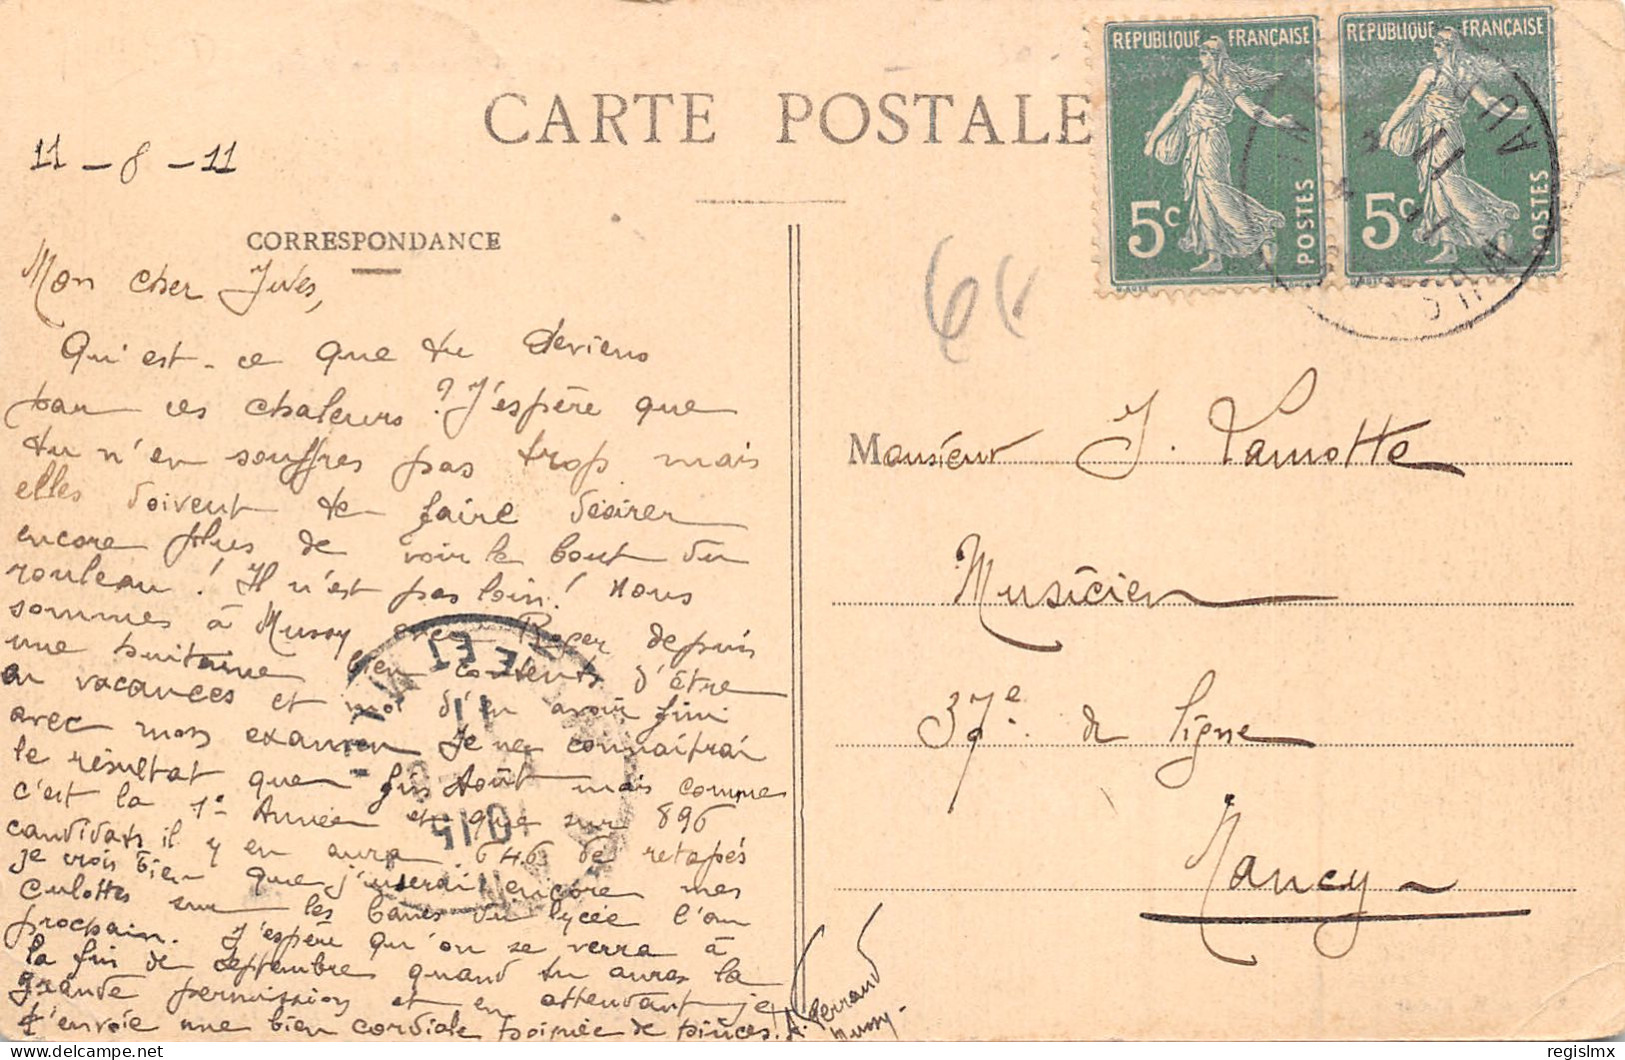 CARTE POSTALE
REPUBLIQUE FRANÇAISE
5c POSTES
REPUBLIQUE FRANÇAISE
5c POSTES
11 - 8 - 11
CORRESPONDANCE
6€
Mon cher Jules,
Qu'est-ce que tu deviens
par ces chaleurs ? J'espère que
tu n'en souffres pas trop mais
elles doivent te faire désirer
encore plus de voir le bout du
rouleau ! Il n'est pas loin ! Nous
sommes à Mussy avec Roger depuis
une huitaine bien contents d'être
en vacances et moi d'en avoir fini
avec mon examen. Je ne connaîtrai
le résultat que fin Août mais comme
c'est la 1e Année et que sur 896
candidats il y en aura 646 de retapés
je crois bien que j'userai encore mes
culottes sur les bancs du lycée l'an
prochain. J'espère qu'on se verra à
la fin de Septembre quand tu auras la
grande permission et en attendant je
t'envoie une bien cordiale poignée de pinces.
A. Ferrand
Mussy.
Monsieur J. Lamotte
Musicien
37e de ligne
Nancy
regislmx